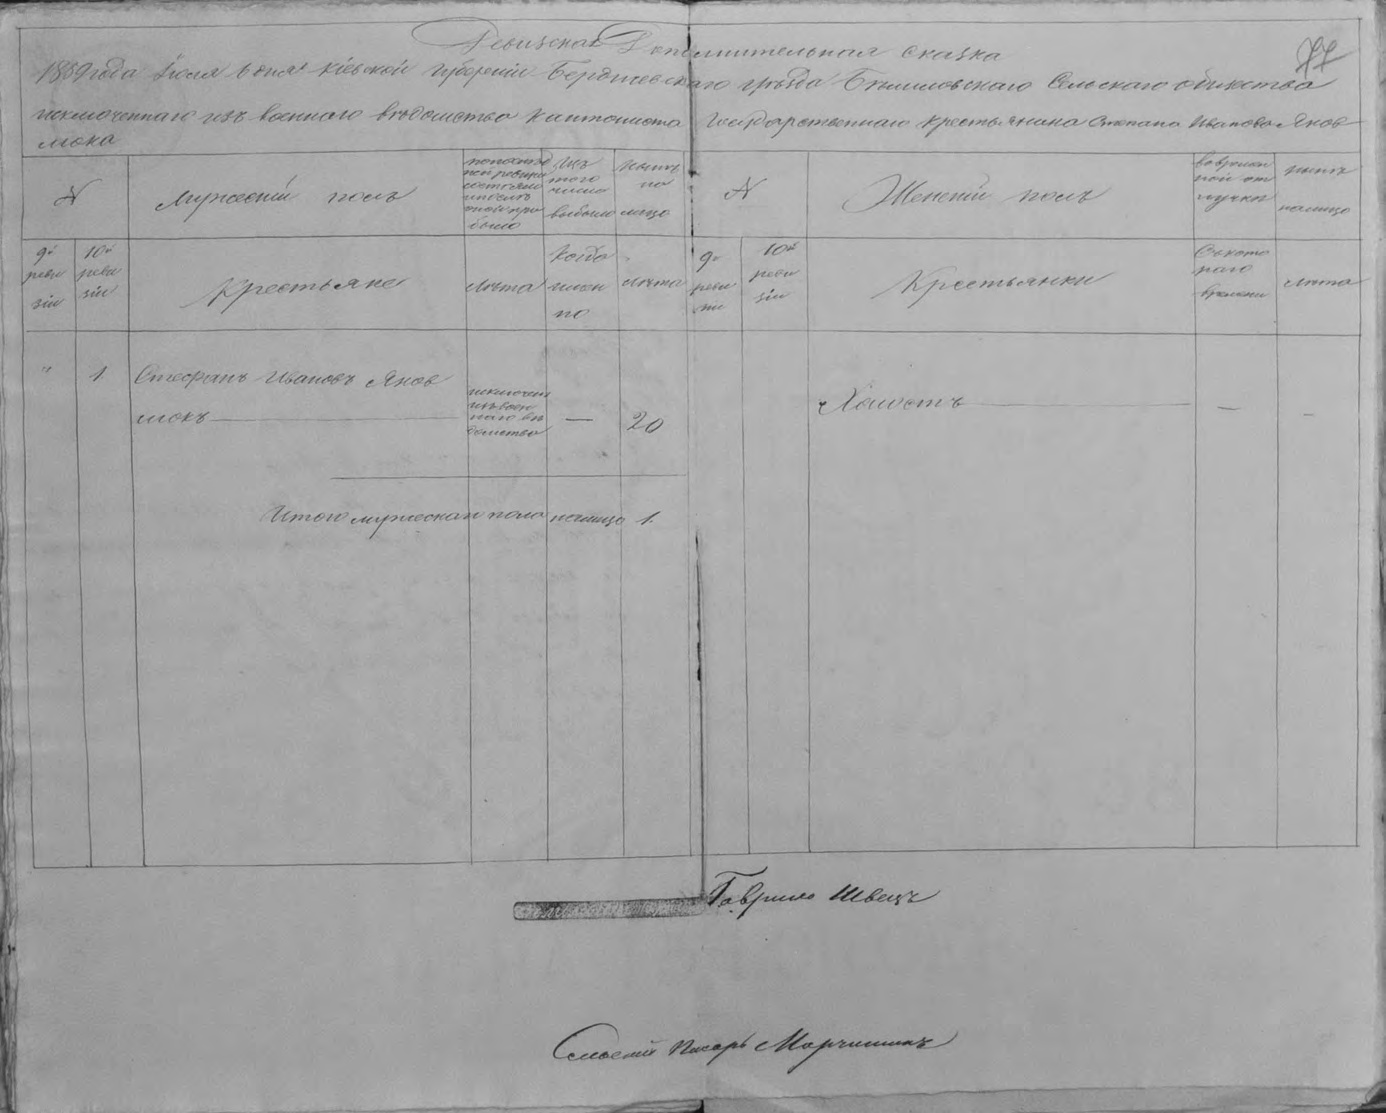 Ревизская Дополнительная сказка
77
1859 года Іюля 6 дня Кіевской Губерніи Бердичевскаго уѣзда Бѣлиловскаго Сельскаго общества
исключеннаго изъ военнаго вѣдомства кантониста Государственнаго крестьянина Степана Иванова Янов
люка
N
Мужескій полъ
Изъ
того
числа
выбыло
Нынѣ
на
лицо
N
Женскій полъ
нынѣ
налицо
9й
реви
зіи
10й
реви
зіи
Крестьяне
лѣта
Когда
имен
но
лѣта
9я
реви
зіи
10й
реви
зіи
Крестьянки
Съкото
раго
времени
лѣта
"
1
Стефанъ Ивановъ Янов
люкъ
исключенъ
изъ воен
наго вѣ
домства
—
20
Холостъ
—
—
Итого мужескаго пола налицо 1.
Гаврило Швецъ
Сельскій Писарь